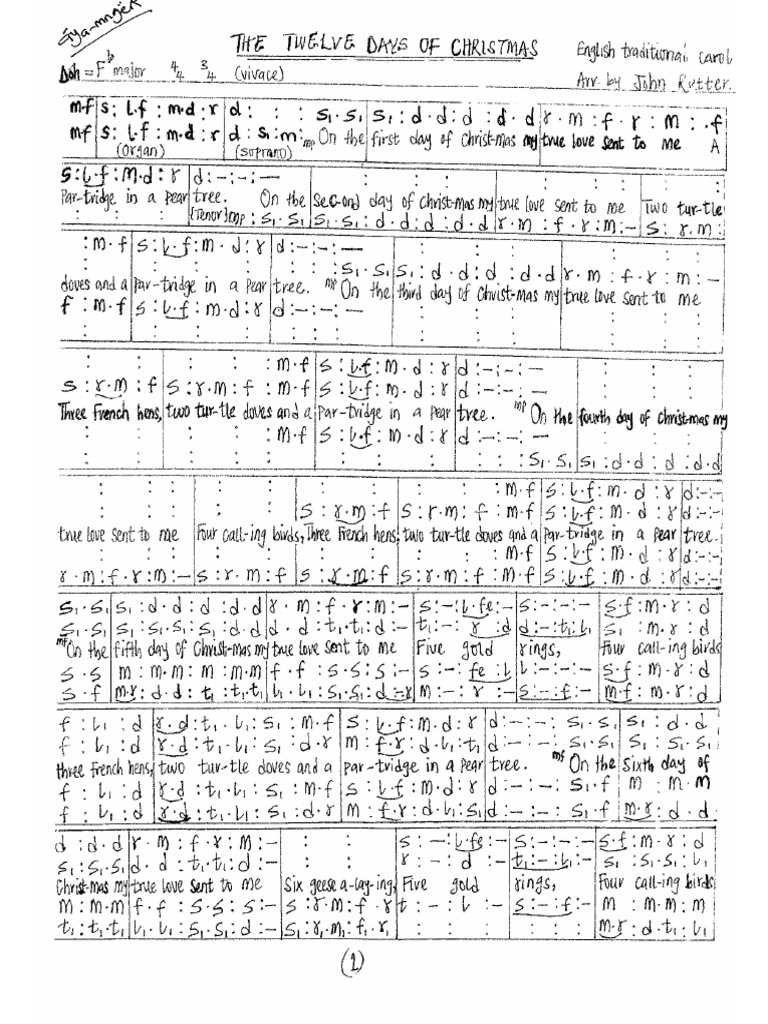 Sya-mnger
THE TWELVE DAYS OF CHRISTMAS
English traditional carol
Doh = F♭ major 4/4 3/4 (vivace)
Arr. by John Rutter.
mf s : l.f : m.d : r d : : s₁.s₁ s₁ : d.d : d : d.d r.m : f.r : m : .f
mf s : l.f : m.d : r d : s₁ : m : mp On the first day of Christ-mas my true love sent to me A
(Organ) (Soprano)
s : l.f : m.d : r d : - : - : -
Par-tridge in a pear tree. On the second day of Christ-mas my true love sent to me Two tur-tle
(Tenor) mp : s₁.s₁ s₁.s₁ : d.d : d : d.d r.m : f.r : m : - s : r.m :
: m.f s : l.f : m.d : r d : - : - : -
: s₁.s₁ s₁ : d.d : d : d.d r.m : f.r : m : -
doves and a par-tridge in a pear tree. mp On the third day of Christ-mas my true love sent to me
f : m.f s : l.f : m.d : r d : - : - : -
: : : m.f s : l.f : m.d : r d : - : - : -
s : r.m : f s : r.m : f : m.f s : l.f : m.d : r d : - : - : -
Three French hens, two tur-tle doves and a par-tridge in a pear tree. mp On the fourth day of Christ-mas my
: : : m.f s : l.f : m.d : r d : - : - : -
: : : s₁.s₁ s₁ : d.d : d : d.d
: : : m.f s : l.f : m.d : r d : - : -
s : r.m : f s : r.m : f : m.f s : l.f : m.d : r d : - : -
true love sent to me Four call-ing birds, Three French hens, two tur-tle doves and a par-tridge in a pear tree.
: : : m.f s : l.f : m.d : r d : - : -
r.m : f.r : m : - s : r.m : f s : r.m : f s : r.m : f : m.f s : l.f : m.d : r d : - : -
s₁.s₁ s₁ : d.d : d : d.d r.m : f.r : m : - s : - : l.fe : - s : - : - : - s.f : m.r : d
s₁.s₁ s₁ : s₁.s₁ : s₁ : d.d d.d : t₁.t₁ : d : - t₁ : - : r : d d : - : t₁ : l₁ s₁ : m.r : d
mf On the fifth day of Christ-mas my true love sent to me Five gold rings, Four call-ing birds
s.s m : m.m : m : m.m f.f : s.s : s : - s : - : fe : l s : - : - : - s.f : m.r : d
s.f m.r : d.d : t₁ : t₁.t₁ l₁.l₁ : s₁.s₁ : d : -.r m : - : r : - s : - : f : - m.f : m.r : d
f : l₁ : d r.d : t₁.l₁ : s₁ : m.f s : l.f : m.d : r d : - : - : s₁.s₁ s₁ : d.d
f : l₁ : d r.d : t₁.l₁ : s₁ : d.r m : f.r : d.l₁ : t₁ d : - : - : s₁.s₁ s₁ : s₁.s₁
three French hens, two tur-tle doves and a par-tridge in a pear tree. mf On the Sixth day of
f : l₁ : d r.d : t₁.l₁ : s₁ : m.f s : l.f : m.d : r d : - : - : s₁.f m : m.m
f : l₁ : d r.d : t₁.l₁ : s₁ : d.r m : f.r : d.l₁ : s₁ d : - : - : s₁.f m.r : d.d
d : d.d r.m : f.r : m : - : : s : - : l.fe : - s : - : - : - s.f : m.r : d
s₁ : s₁.s₁ d.d : t₁.t₁ : d : - : : r : - : d : - t₁ : - : l₁ : - s₁ : s₁.s₁ : l₁
Christ-mas my true love sent to me Six geese a-lay-ing, Five gold rings, Four call-ing birds
m : m.m f.f : s.s : s : - s : r.m : f.r t : - : l : - s : - : f : - m : m.m : m
t₁ : t₁.t₁ l₁.l₁ : s₁.s₁ : d : - s₁ : r₁.m₁ : f₁.r₁ : : : : : : m.r : d.t₁ : l₁
(1)